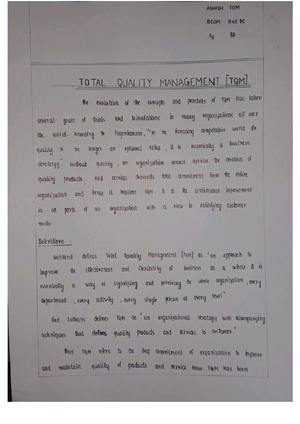 ASHISH TOM
BCOM
TOTAL QUALITY MANAGEMENT [TQM]
The evolution of the concepts and practices of TQM has taken
several years of trials and tribulations in many organisations all over
the world. According to "In the increasing competitive world the
quality is no longer an optional extra, it is essentially a business
strategy". Without quality, an organization cannot survive. The creation of
quality products and services demands total commitment from the entire
organization and hence it requires TQM. It is the continuous improvement
in all parts of an organization with a view to satisfying customer
needs.
Definitions
defines Total Quality Management [TQM] as "An approach to
improve the effectiveness and flexibility of business as a whole it is
essentially a way of organising and involving the whole organisation, every
department, every activity, every single person at every level"
defines TQM as "an organizational strategy with accompanying
techniques that delivers quality products and services to customer"
Thus TQM refers to the deep commitment of organisation to improve
and maintain quality of products and service. Now TQM has been